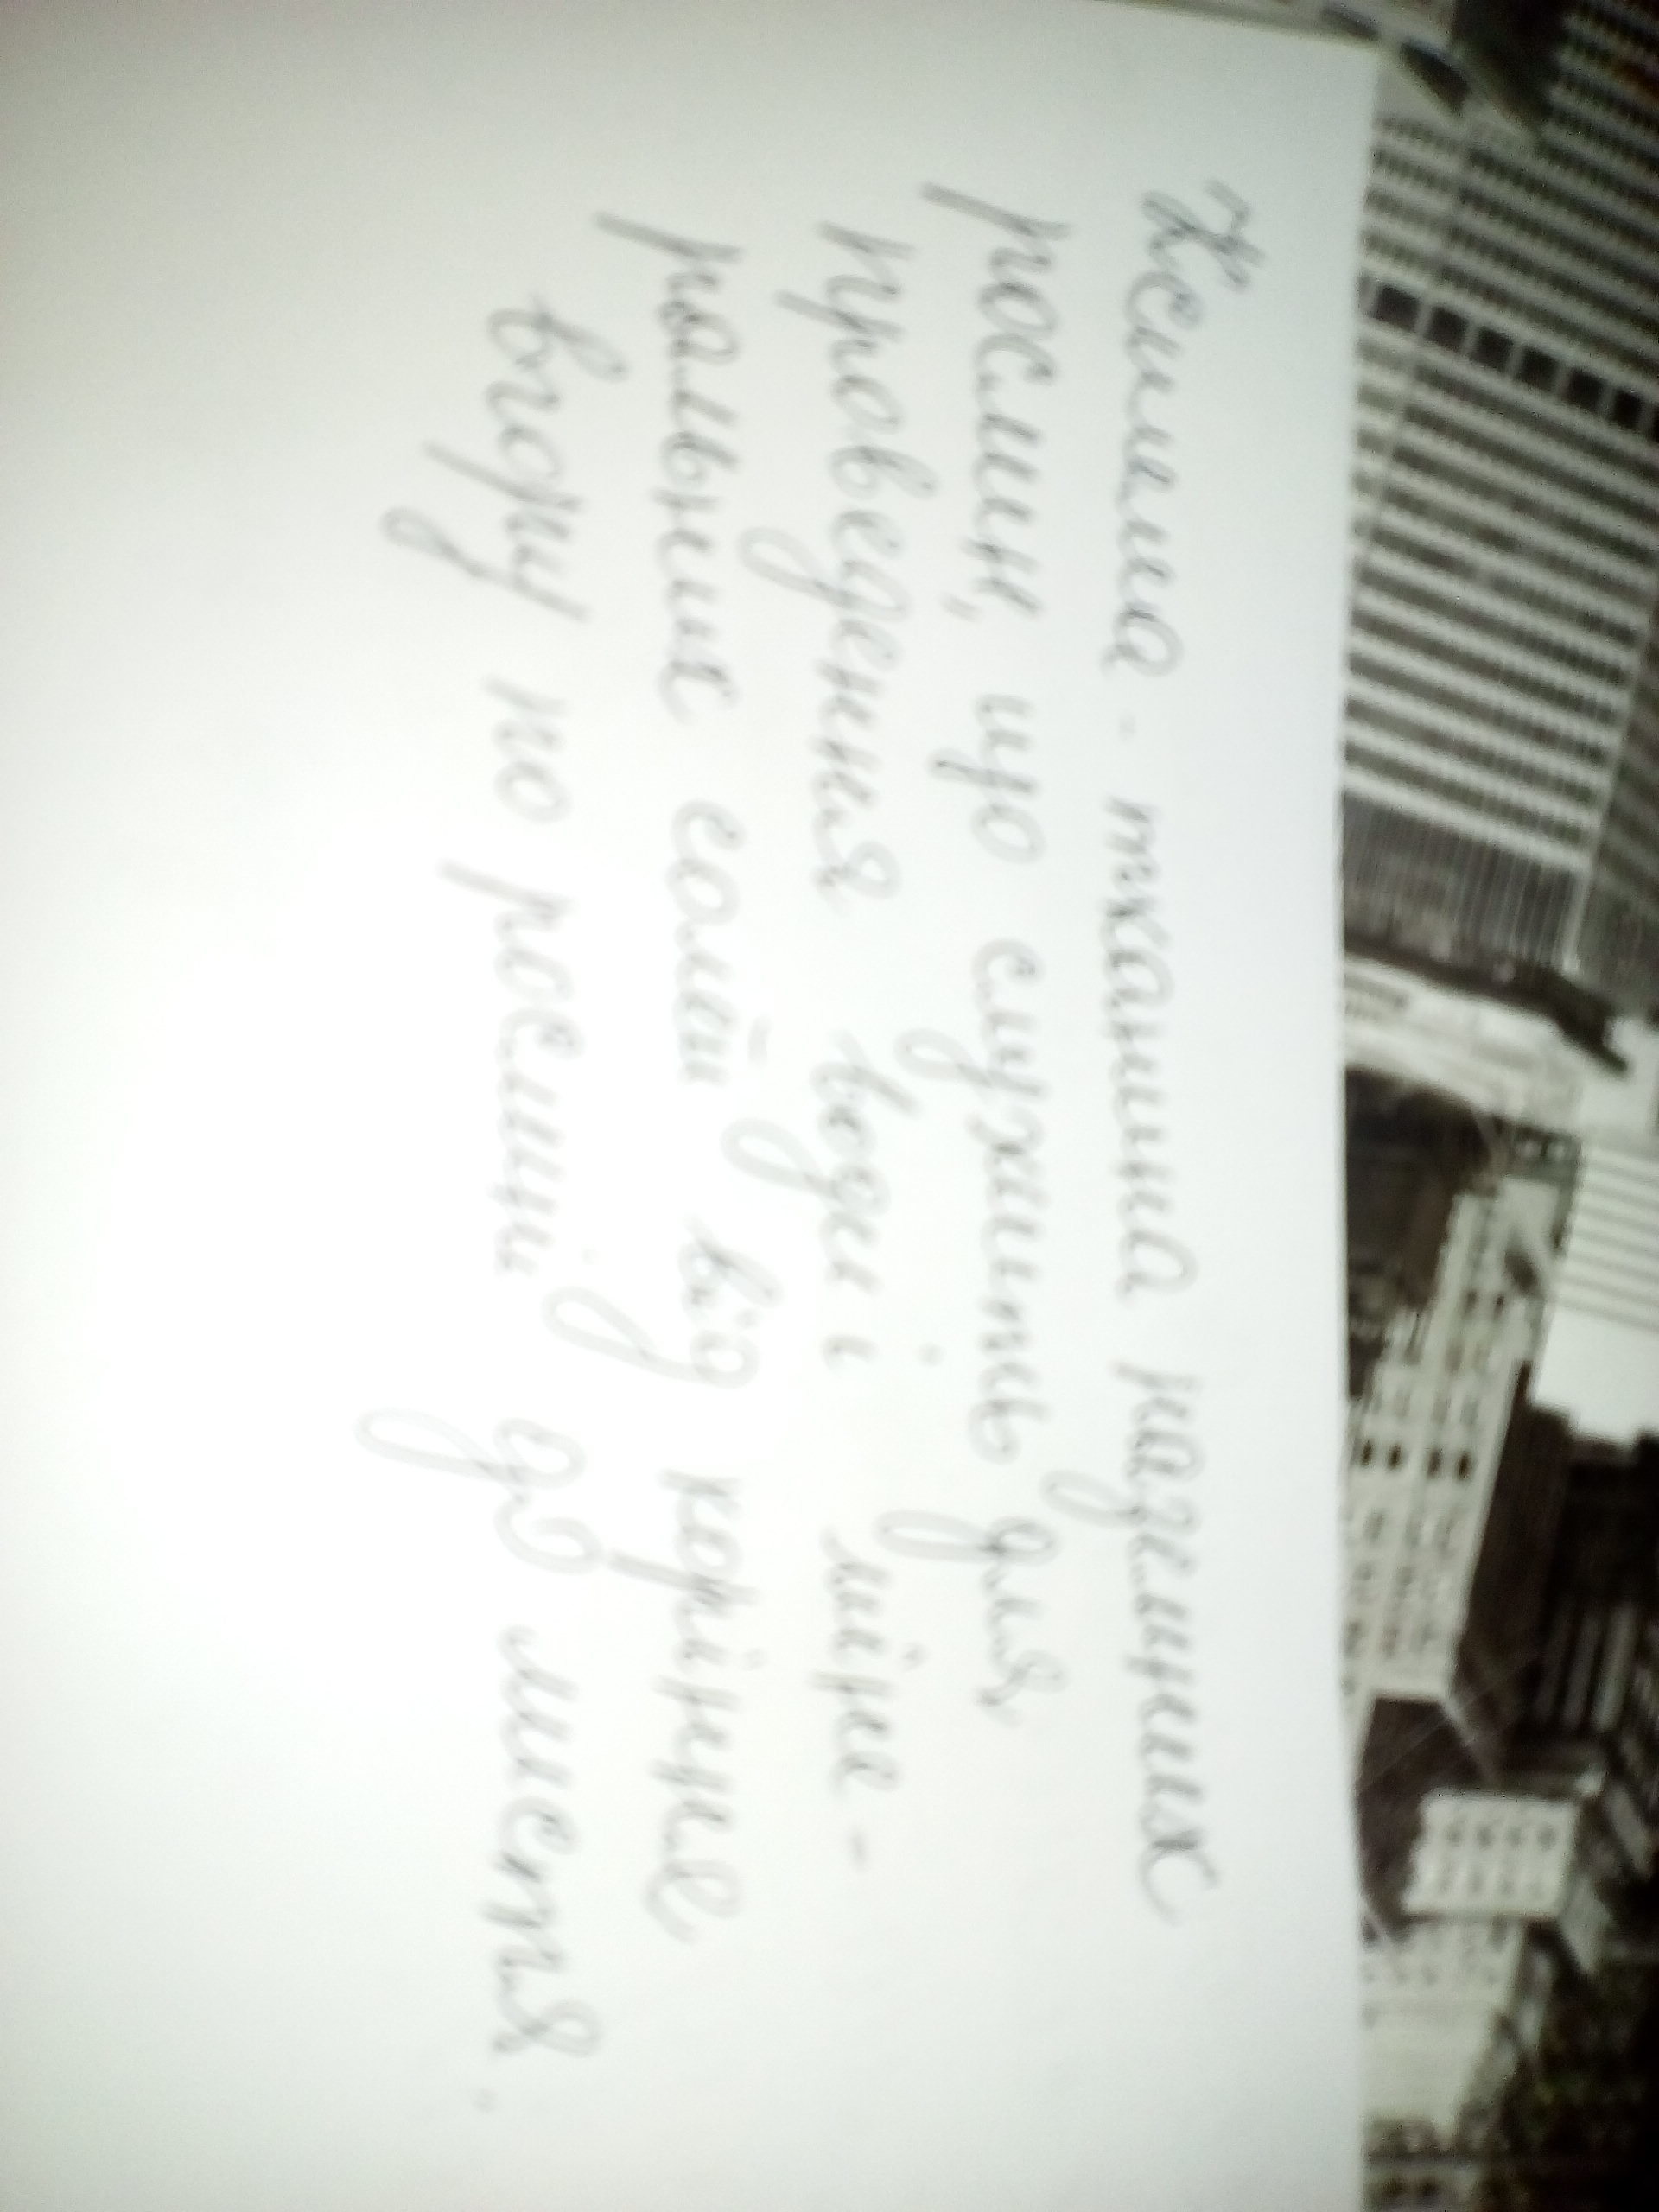 Ксилема - тканина наземних
рослин, що служить для
проведення води і міне-
ральних солей від коріння
вгору по рослині до листя.